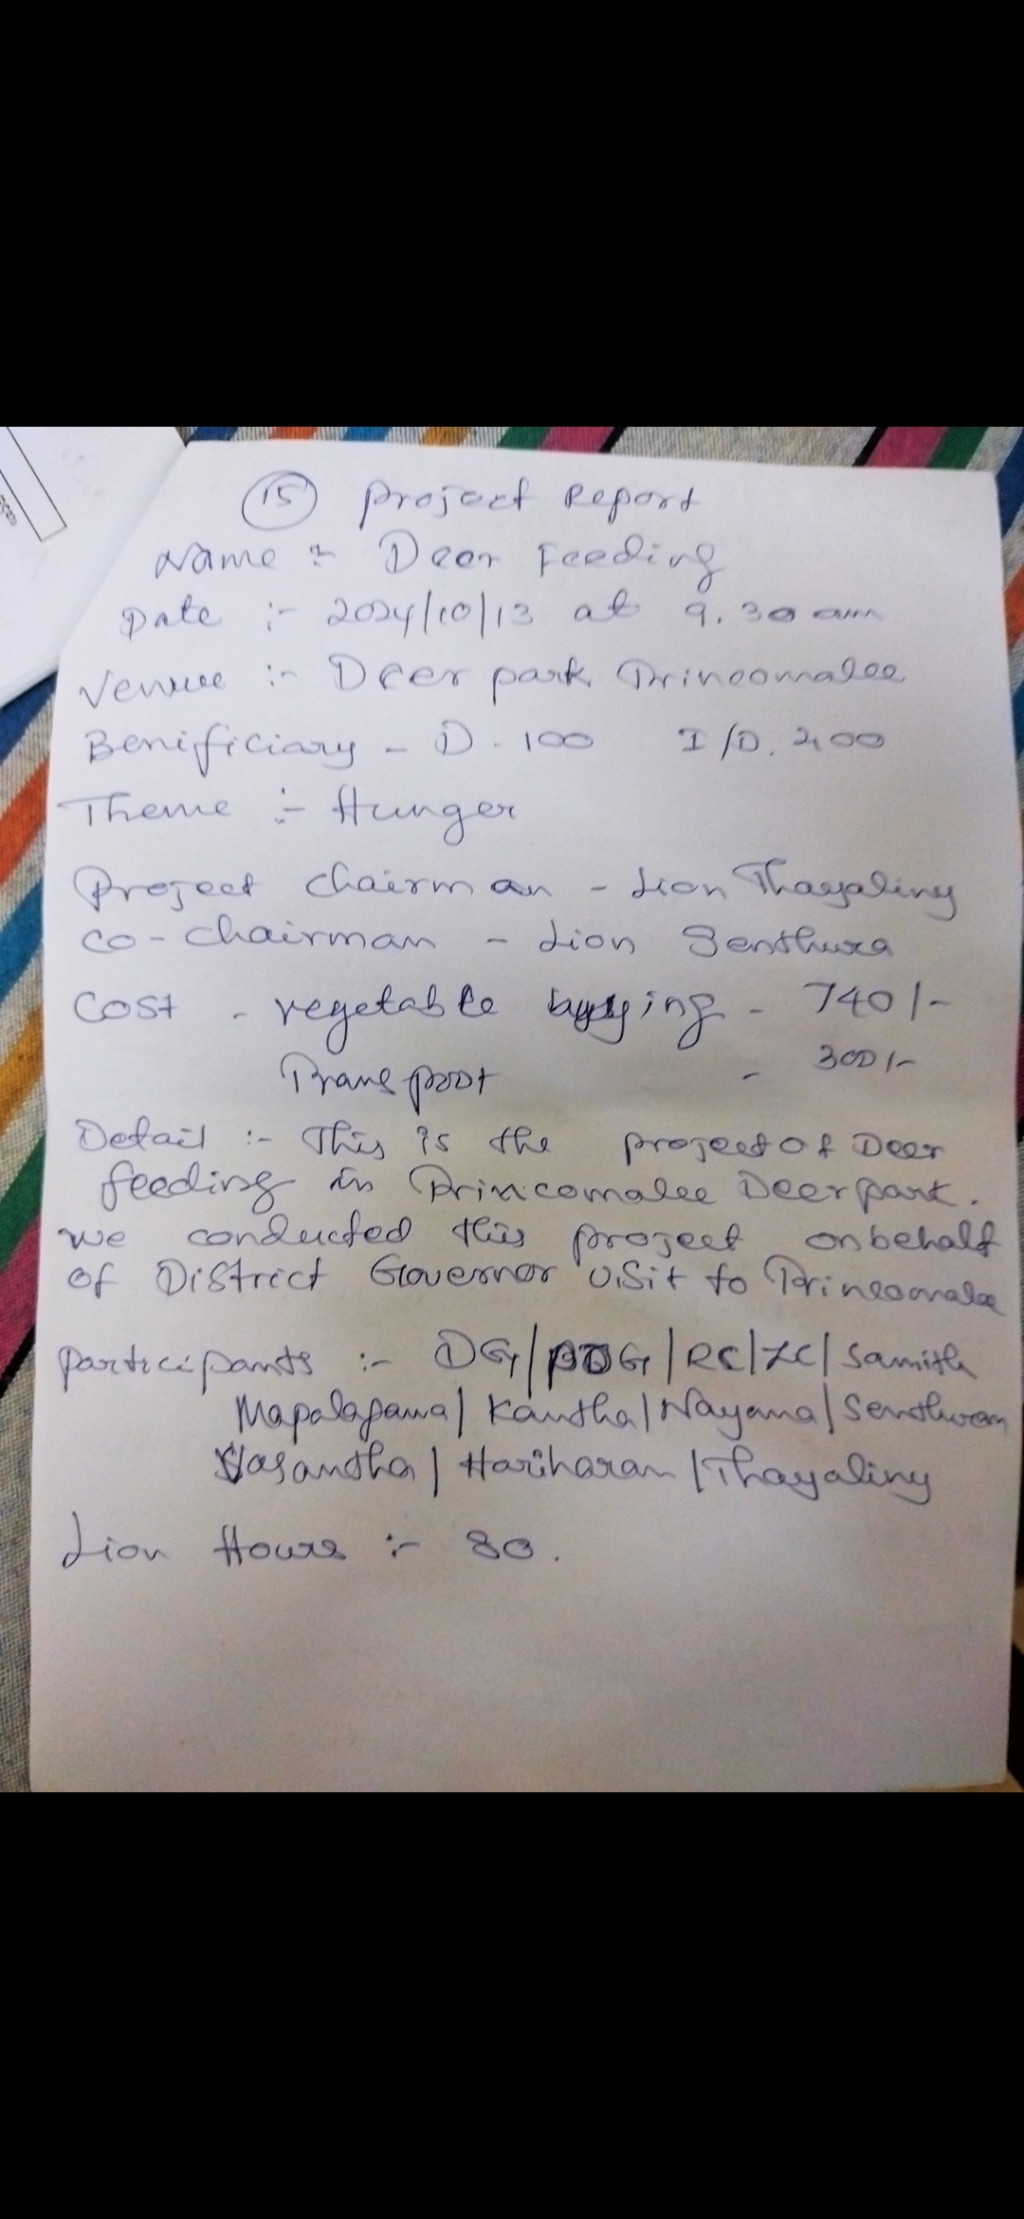 15 Project Report
Name :- Deer Feeding
Date :- 2024/10/13 at 9.30 am
Venue :- Deer park Trincomalee
Benificiary - D. 100 I/D. 200
Theme :- Hunger
Project chairman - Lion Thayaliny
co-chairman - Lion Senthura
Cost - vegetable buying - 740/-
Transport - 300/-
Detail :- This is the project of Deer
feeding in Trincomalee Deer park.
we conducted this project onbehalf
of District Governor visit to Trincomalee
participants :- DG/PDG/RC/ZC/Samith
Mapalagama/Kantha/Nayana/Senthuran
Vasantha/Hariharan/Thayaliny
Lion Hours :- 80.